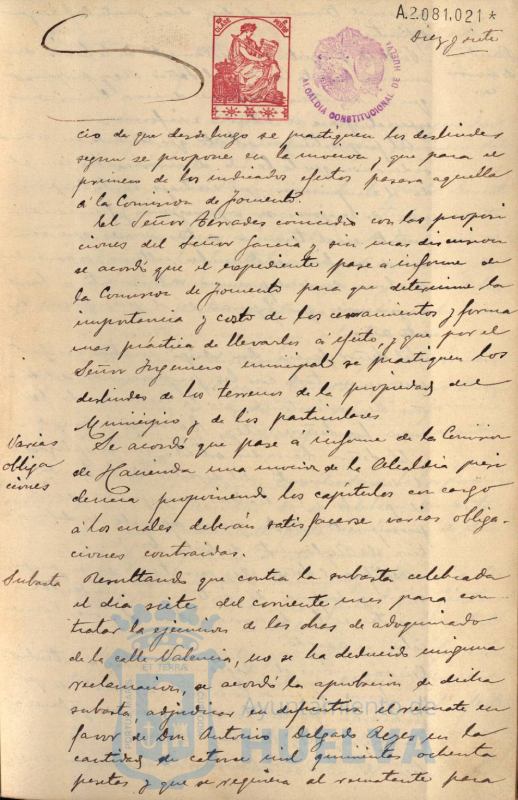 A.2.081,021 *
Diez y siete
ALCALDIA CONSTITUCIONAL DE HUELVA
cio de que desde luego se practiquen los deslindes
segun se propone en la mocion, y que para el
primero de los indicados efectos pasara aquella
á la Comision de Fomento.
El Señor Terrades coincidió con las proposi
ciones del Señor Garcia y sin mas discusion
se acordó que el expediente pase á informe de
la Comision de Fomento para que determine la
importancia y costo de los cerramientos y forma
mas práctica de llevarlos á efecto, y que por el
Señor Ingeniero municipal se practiquen los
deslindes de los terrenos de la propiedad del
Municipio y de los particulares
Varias
obliga
ciones
Se acordó que pase á informe de la Comision
de Hacienda una mocion de la Alcaldia presi
dencia proponiendo los capitulos con cargo
á los cuales deberán satisfacerse varias obliga-
ciones contraidas.
Subasta
Resultando que contra la subasta celebrada
el dia siete del corriente mes para con
tratar la ejecucion de las obras de adoquinado
de la calle Valencia, no se ha deducido ninguna
reclamacion, se acordó la aprobacion de dicha
subasta, adjudicar en definitiva el remate en
favor de Don Antonio Delgado Reyes en la
cantidad de catorce mil quinientos ochenta
pesetas y que se requiera al rematante para
Ayuntamiento de
HUELVA